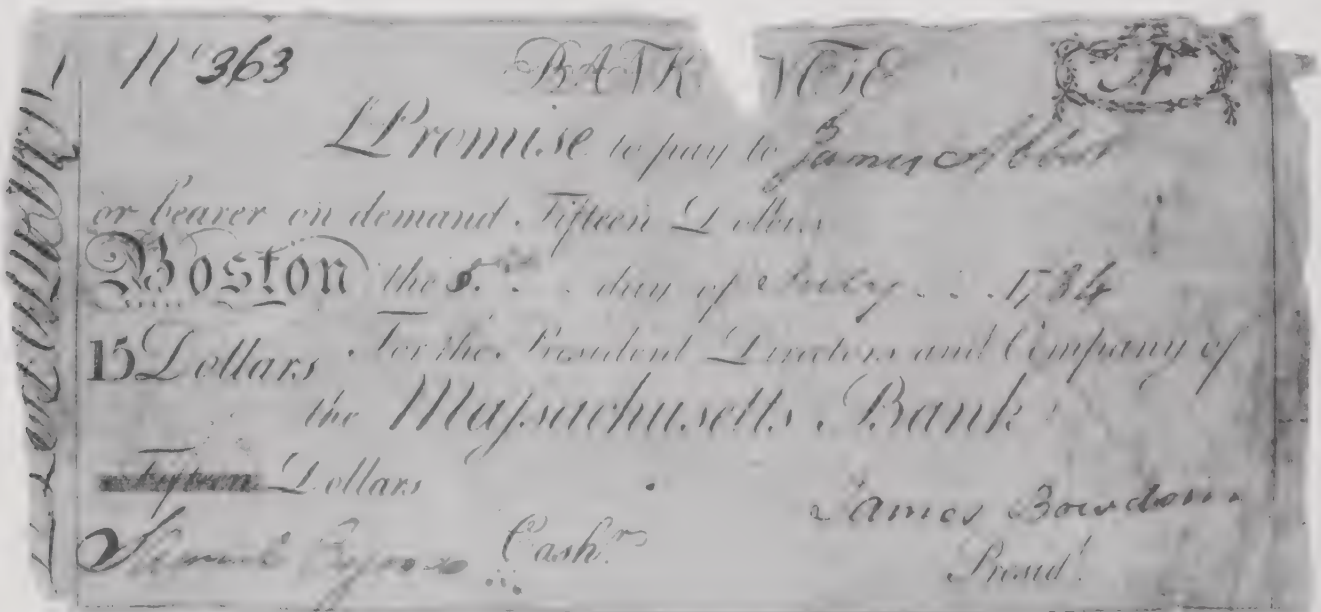 No 363 BANK NOTE A
I Promise to pay to James
or bearer on demand Fifteen Dollars
Boston the 5th day of July 1784
15 Dollars For the President Directors and Company of
the Maſsachusetts Bank
Fifteen Dollars
James Bowdoin
Samuel Cashr.
Presidt.